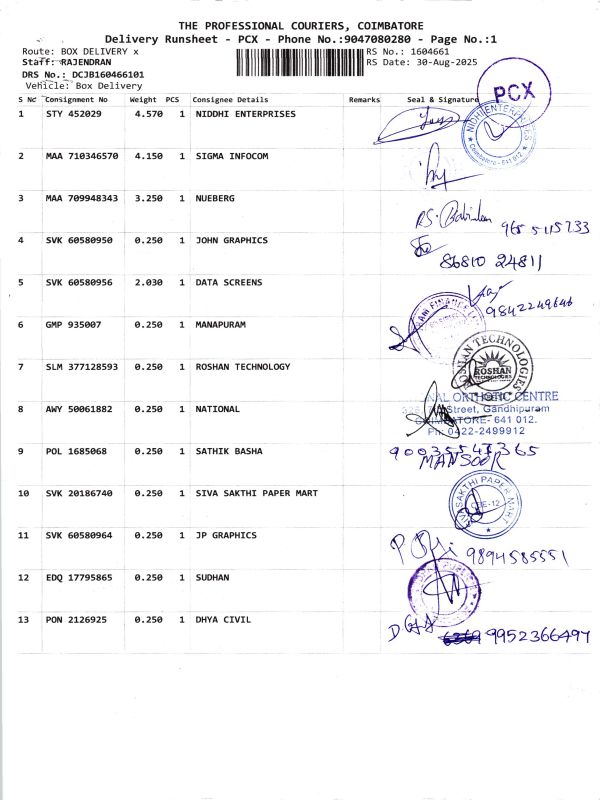 THE PROFESSIONAL COURIERS, COIMBATORE
Delivery Runsheet - PCX - Phone No.:9047080280 - Page No.:1
Route: BOX DELIVERY x RS No.: 1604661
Staff: RAJENDRAN RS Date: 30-Aug-2025
DRS No.: DCJB160466101
Vehicle: Box Delivery
PCX
S No Consignment No Weight PCS Consignee Details Remarks Seal & Signature
1 STY 452029 4.570 1 NIDDHI ENTERPRISES
NIDHI ENTERPRISES
Coimbatore - 641 012
2 MAA 710346570 4.150 1 SIGMA INFOCOM
3 MAA 709948343 3.250 1 NUEBERG
RS.
4 SVK 60580950 0.250 1 JOHN GRAPHICS
86810 24811
5 SVK 60580956 2.030 1 DATA SCREENS
9842249646
6 GMP 935007 0.250 1 MANAPURAM
7 SLM 377128593 0.250 1 ROSHAN TECHNOLOGY
ROSHAN TECHNOLOGIES
ROSHAN
TECHNOLOGIES
8 AWY 50061882 0.250 1 NATIONAL
ORTHOTIC CENTRE
Street, Gandhipuram
COIMBATORE- 641 012.
Ph: 0422-2499912
9 POL 1685068 0.250 1 SATHIK BASHA
MANSOOR
10 SVK 20186740 0.250 1 SIVA SAKTHI PAPER MART
SIVA SAKTHI PAPER MART
CBE-12
11 SVK 60580964 0.250 1 JP GRAPHICS
9894585551
12 EDQ 17795865 0.250 1 SUDHAN
13 PON 2126925 0.250 1 DHYA CIVIL
9952366497